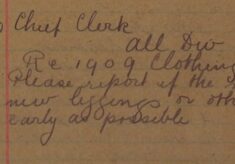 Chief Clerk
All Div
Re 1909 Clothing
Please report if the
new leggings or oth
early as possible